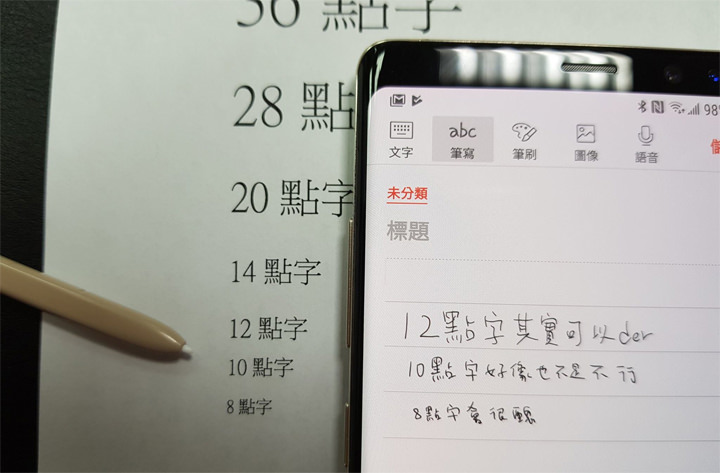 36 點字
28 點
20 點字
14 點字
12 點字
10 點字
8 點字
98%
文字
abc
筆寫
筆刷
圖像
語音
未分類
標題
12點字其實可以der
10點字好像也不是不行
8點字會很醜